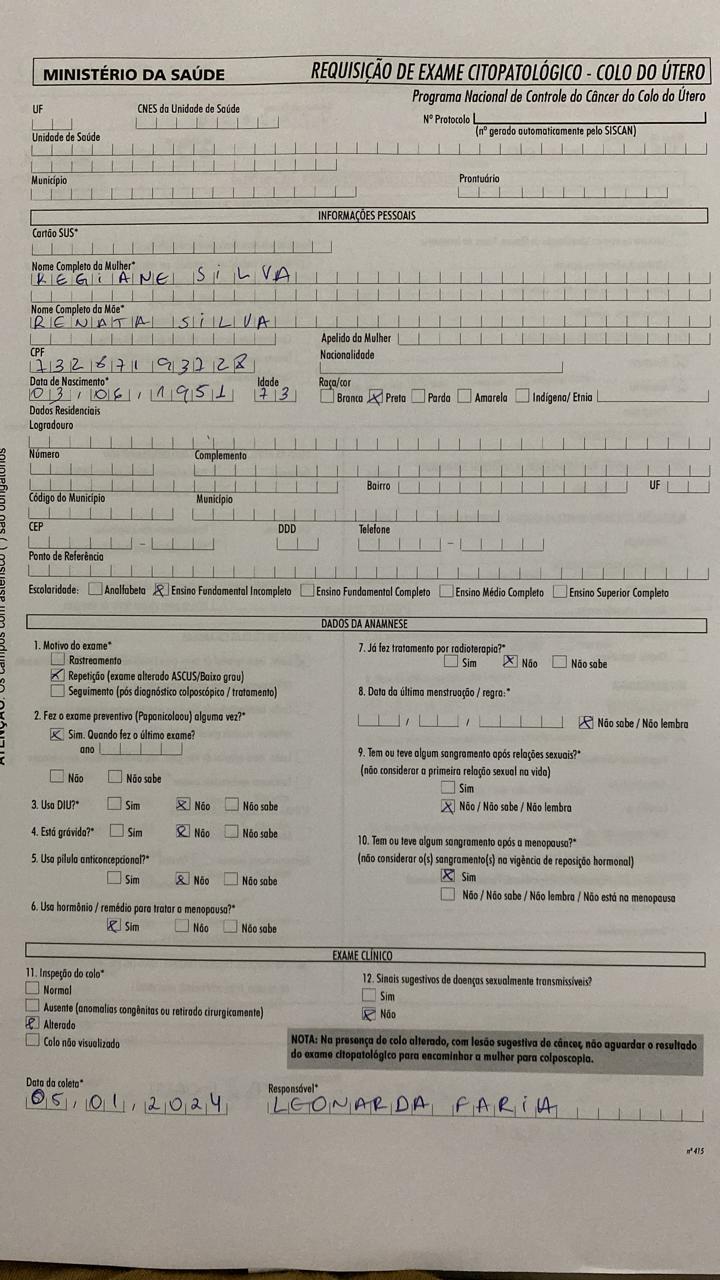 MINISTÉRIO DA SAÚDE REQUISIÇÃO DE EXAME CITOPATOLÓGICO - COLO DO ÚTERO
Programa Nacional de Controle do Câncer do Colo do Útero
UF CNES da Unidade de Saúde Nº Protocolo
(nº gerado automaticamente pelo SISCAN)
Unidade de Saúde
Município Prontuário
INFORMAÇÕES PESSOAIS
Cartão SUS*
Nome Completo da Mulher*
REGIANE SILVA
Nome Completo da Mãe*
RENATA SILVA
Apelido da Mulher
CPF Nacionalidade
Data de Nascimento* Idade Raça/cor
03/06/1951 73 Branca Preta Parda Amarela Indígena/ Etnia
Dados Residenciais
Logradouro
Número Complemento
Bairro UF
Código do Município Município
CEP DDD Telefone
Ponto de Referência
Escolaridade: Analfabeta Ensino Fundamental Incompleto Ensino Fundamental Completo Ensino Médio Completo Ensino Superior Completo
DADOS DA ANAMNESE
1. Motivo do exame*
Rastreamento
Repetição (exame alterado ASCUS/Baixo grau)
Seguimento (pós diagnóstico colposcópico / tratamento)
2. Fez o exame preventivo (Papanicolaou) alguma vez?*
Sim. Quando fez o último exame?
ano
Não Não sabe
3. Usa DIU?* Sim Não Não sabe
4. Está grávida?* Sim Não Não sabe
5. Usa pílula anticoncepcional?*
Sim Não Não sabe
6. Usa hormônio / remédio para tratar a menopausa?*
Sim Não Não sabe
7. Já fez tratamento por radioterapia?*
Sim Não Não sabe
8. Data da última menstruação / regra:*
/ / Não sabe / Não lembra
9. Tem ou teve algum sangramento após relações sexuais?*
(não considerar a primeira relação sexual na vida)
Sim
Não / Não sabe / Não lembra
10. Tem ou teve algum sangramento após a menopausa?*
(não considerar o(s) sangramento(s) na vigência de reposição hormonal)
Sim
Não / Não sabe / Não lembra / Não está na menopausa
EXAME CLÍNICO
11. Inspeção do colo*
Normal
Ausente (anomalias congênitas ou retirado cirurgicamente)
Alterado
Colo não visualizado
12. Sinais sugestivos de doenças sexualmente transmissíveis?
Sim
Não
NOTA: Na presença de colo alterado, com lesão sugestiva de câncer, não aguardar o resultado
do exame citopatológico para encaminhar a mulher para colposcopia.
Data da coleta* Responsável*
05/01/2024 LEONARDA FARIA
nº 415
ATENÇÃO: Os campos com asterisco (*) são obrigatórios